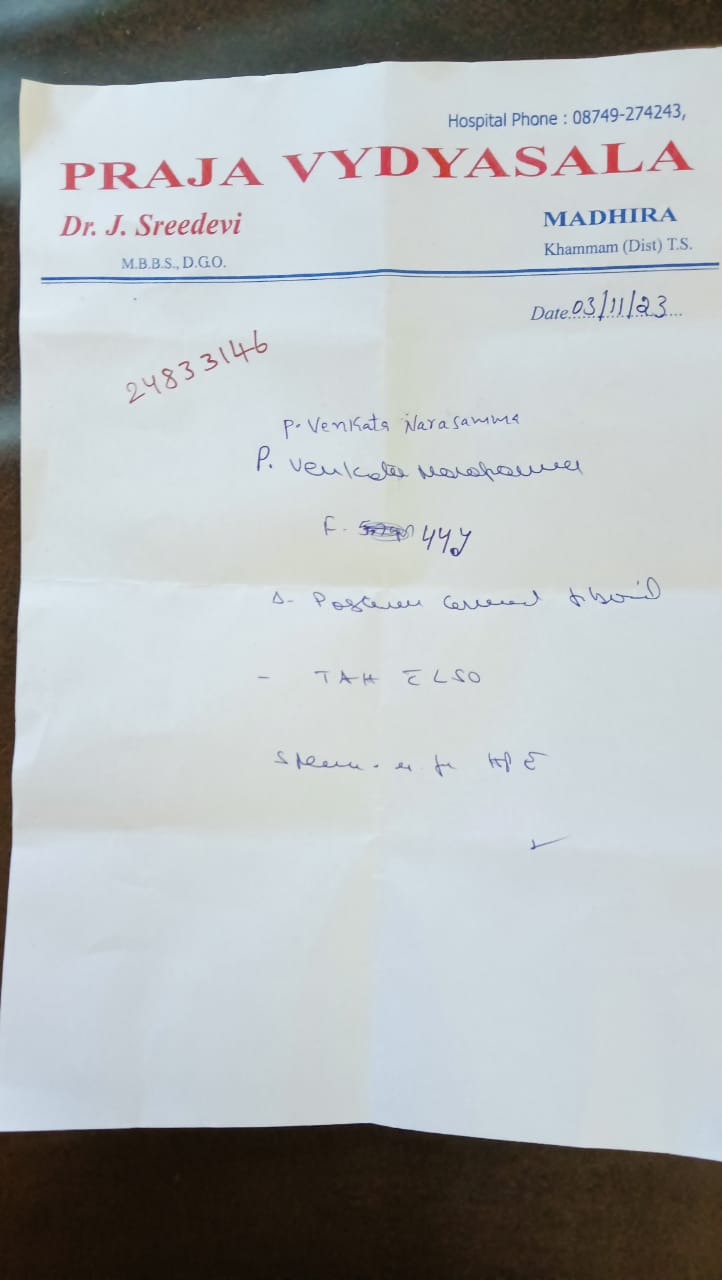 Hospital Phone : 08749-274243,
PRAJA VYDYASALA
Dr. J. Sreedevi
M.B.B.S., D.G.O.
MADHIRA
Khammam (Dist) T.S.
Date 03/11/23
24833146
P. Venkata Narasamma
P. Venkata Narasamma
F. 44y
Posterior Cervical fibroid
- TAH C̄ LSO
for HPE